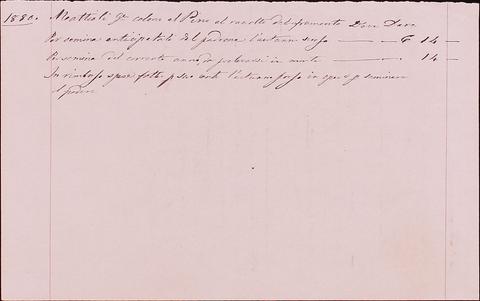 1880. Meattioli G. colono al Pero al raccolto del frumento Deve Dare
Per semina anticipatali dal padrone l'autunno scorso — C 14 —
Per semina del corrente anno, da prelevarsi in monte — 14 —
In rimborso spese fatte, p suo conto l'autunno scorso in opere p seminare
il podere